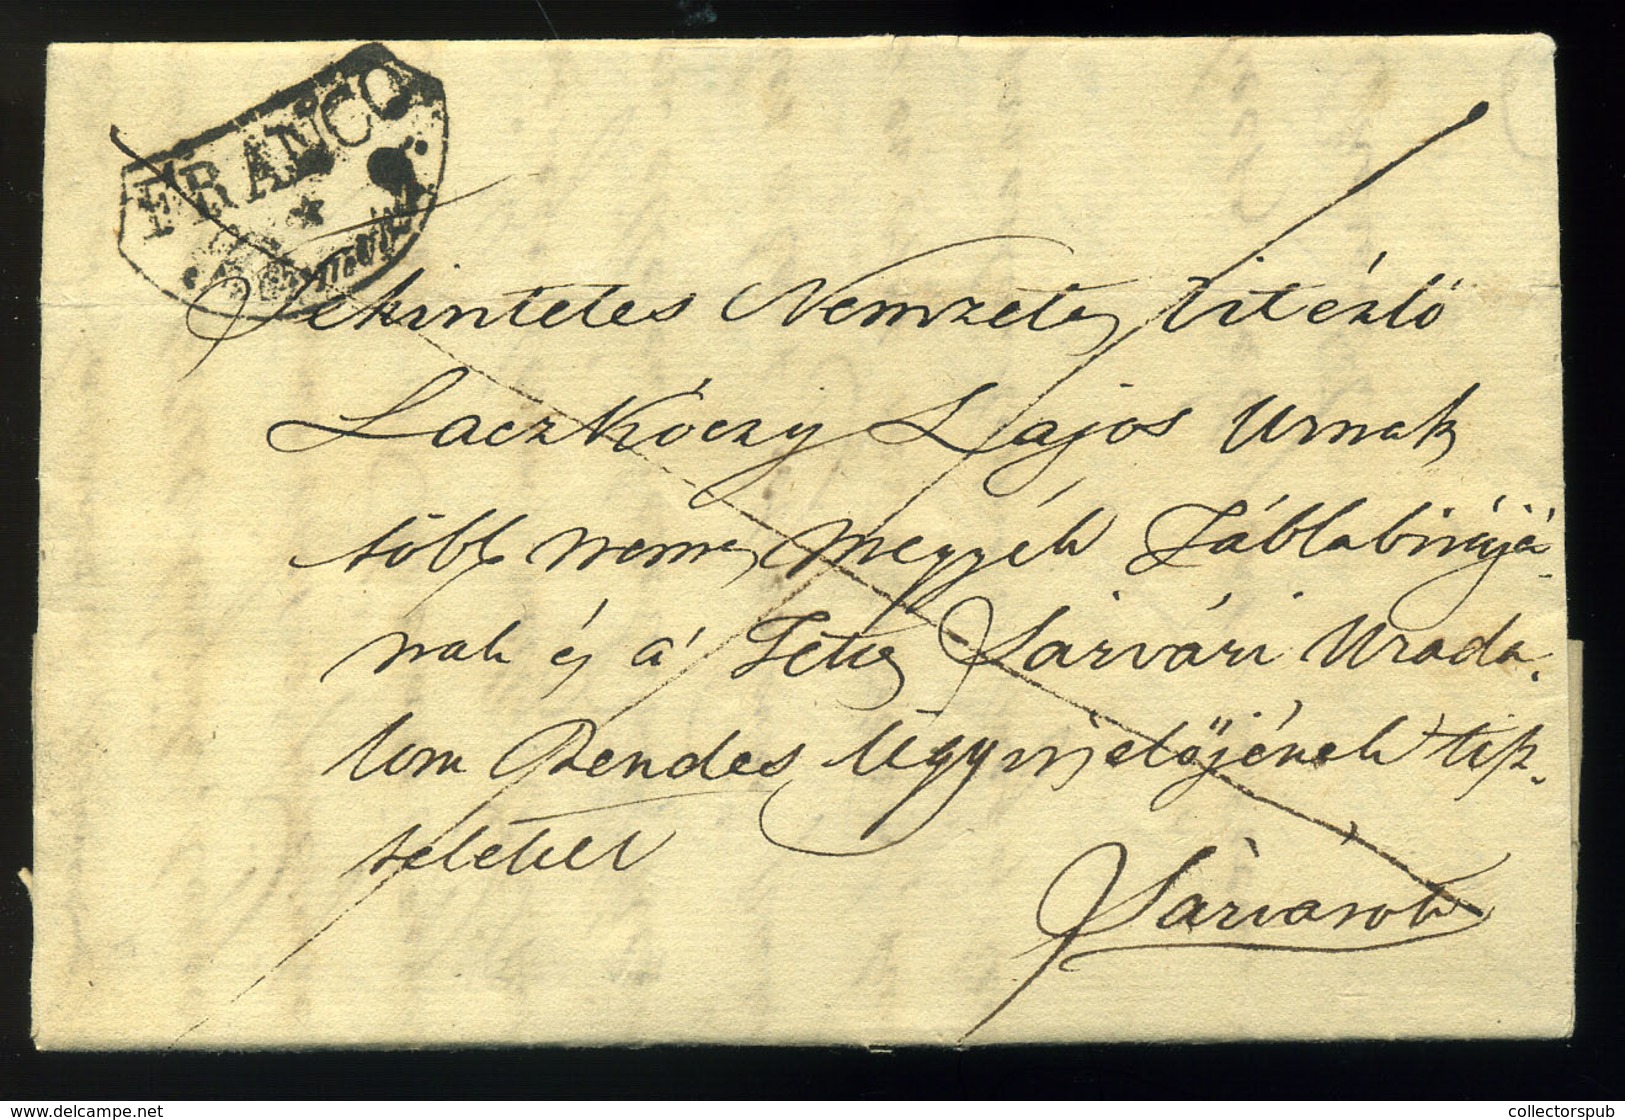 FRANCO
Tekintetes Nemzetes Vitézlő
Laczkóczy Lajos Urnak
több nemes Megyék Táblabirájá-
nak és a' Tttes Sárvári Urada-
lom Rendes Ügyviselőjének tisz-
telettel
Sárvárott
collectorspub.com